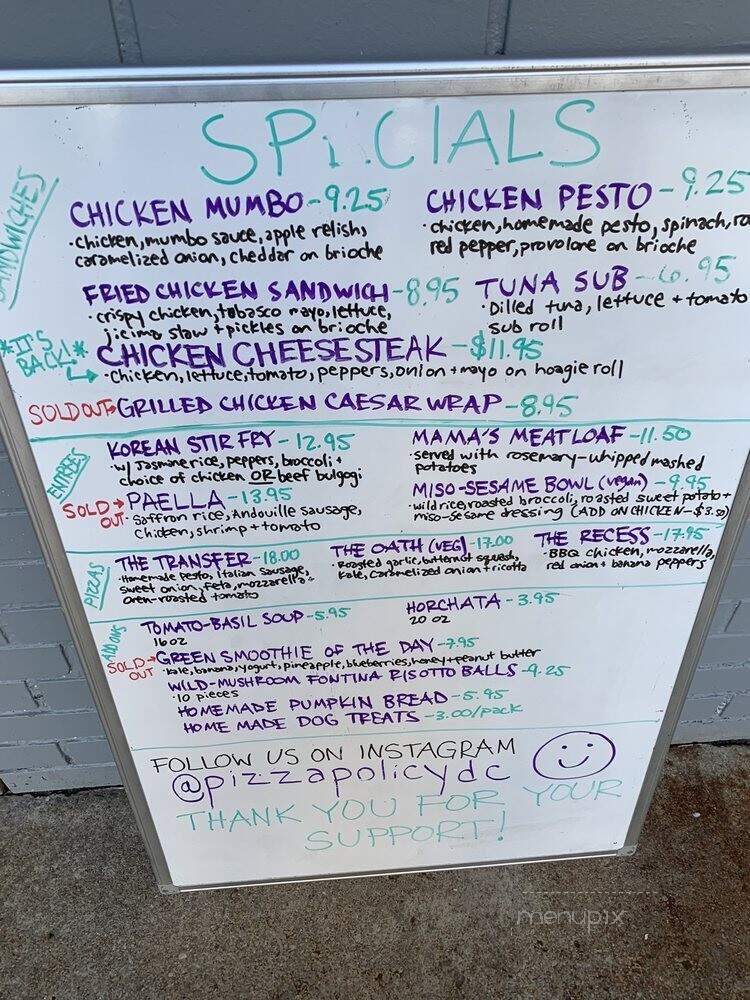 SPi.CIALS
SANDWICHES
CHICKEN MUMBO-9.25
•chicken, mumbo sauce, apple relish,
caramelized onion, cheddar on brioche
CHICKEN PESTO-9.25
•chicken, homemade pesto, spinach, ro
red pepper, provolone on brioche
FRIED CHICKEN SANDWICH-8.95
•crispy chicken, tobasco mayo, lettuce,
jicima slaw + pickles on brioche
TUNA SUB-6.95
•Dilled tuna, lettuce + tomato
sub roll
*IT'S
BACK!*
CHICKEN CHEESESTEAK-$11.95
•Chicken, lettuce, tomato, peppers, onion + mayo on hoagie roll
SOLD OUT→GRILLED CHICKEN CAESAR WRAP-8.95
ENTREES
KOREAN STIR FRY-12.95
•w/ Jasmine rice, peppers, broccoli +
choice of chicken OR beef bulgogi
MAMA'S MEATLOAF-11.50
•served with rosemary-whipped mashed
potatoes
SOLD→
OUT
PAELLA-13.95
•Saffron rice, Andouille sausage,
chicken, shrimp + tomato
MISO-SESAME BOWL (vegan)-9.95
•wild rice, roasted broccoli, roasted sweet potato +
miso-sesame dressing (ADD ON CHICKEN-$3.50)
PIZZAS
THE TRANSFER-18.00
•Homemade pesto, Italian sausage,
sweet onion, feta, mozzarella +
oven-roasted tomato
THE OATH (VEG)-17.00
•Roasted garlic, butternut squash,
kale, caramelized onion + ricotta
THE RECESS-17.95
•BBQ chicken, mozzarella,
red onion + banana peppers
ADD ONS
TOMATO-BASIL SOUP-5.95
16oz
HORCHATA-3.95
20 oz
SOLD→
OUT
GREEN SMOOTHIE OF THE DAY-7.95
•kale, banana, yogurt, pineapple, blueberries, honey + peanut butter
WILD-MUSHROOM FONTINA RISOTTO BALLS-9.25
•10 pieces
HOMEMADE PUMPKIN BREAD-5.95
HOME MADE DOG TREATS-3.00/pack
FOLLOW US ON INSTAGRAM
@pizzapolicydc
THANK YOU FOR YOUR
SUPPORT!
menupix